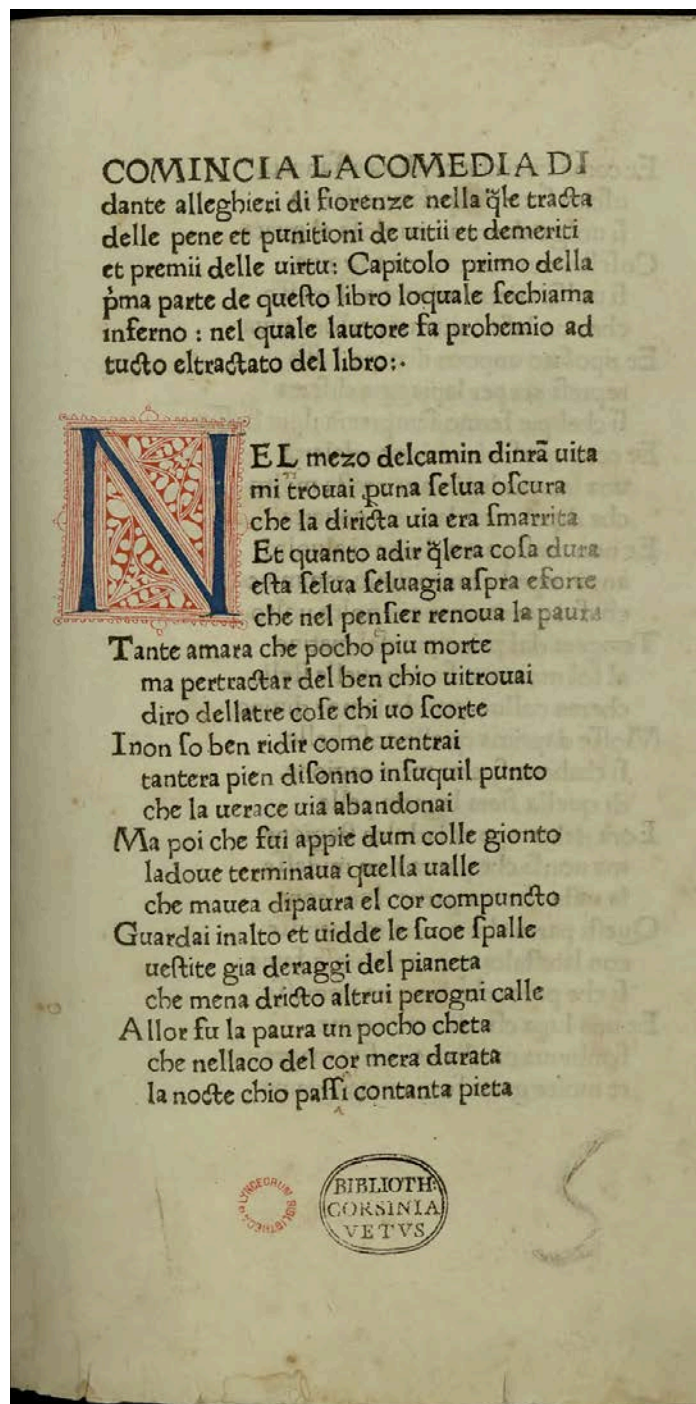 COMINCIA LACOMEDIA DI
dante alleghieri di fiorenze nella q̃le tracta
delle pene et punitioni de uitii et demeriti
et premii delle uirtu: Capitolo primo della
p̍ma parte de queſto libro loquale ſechiama
inferno : nel quale lautore fa prohemio ad
tucto eltractato del libro:·
NEL mezo delcamin dinrã uita
mi trouai ꝑuna ſelua oſcura
che la diricta uia era ſmarrita
Et quanto adir q̃lera coſa dura
eſta ſelua ſeluagia aſpra eforte
che nel penſier renoua la paura
Tante amara che pocho piu morte
ma pertractar del ben chio uitrouai
diro dellatre coſe chi uo ſcorte
Inon ſo ben ridir come uentrai
tantera pien diſonno inſuquil punto
che la uerace uia abandonai
Ma poi che fui appie dum colle gionto
ladoue terminaua quella ualle
che mauea dipaura el cor compuncto
Guardai inalto et uidde le ſuoe ſpalle
ueſtite gia deraggi del pianeta
che mena dricto altrui perogni calle
Allor fu la paura un pocho cheta
che nellaco del cor mera durata
la nocte chio paſſi contanta pieta
LYNCEORUM BIBLIOTHECA
BIBLIOTH.
CORSINIA
VETVS